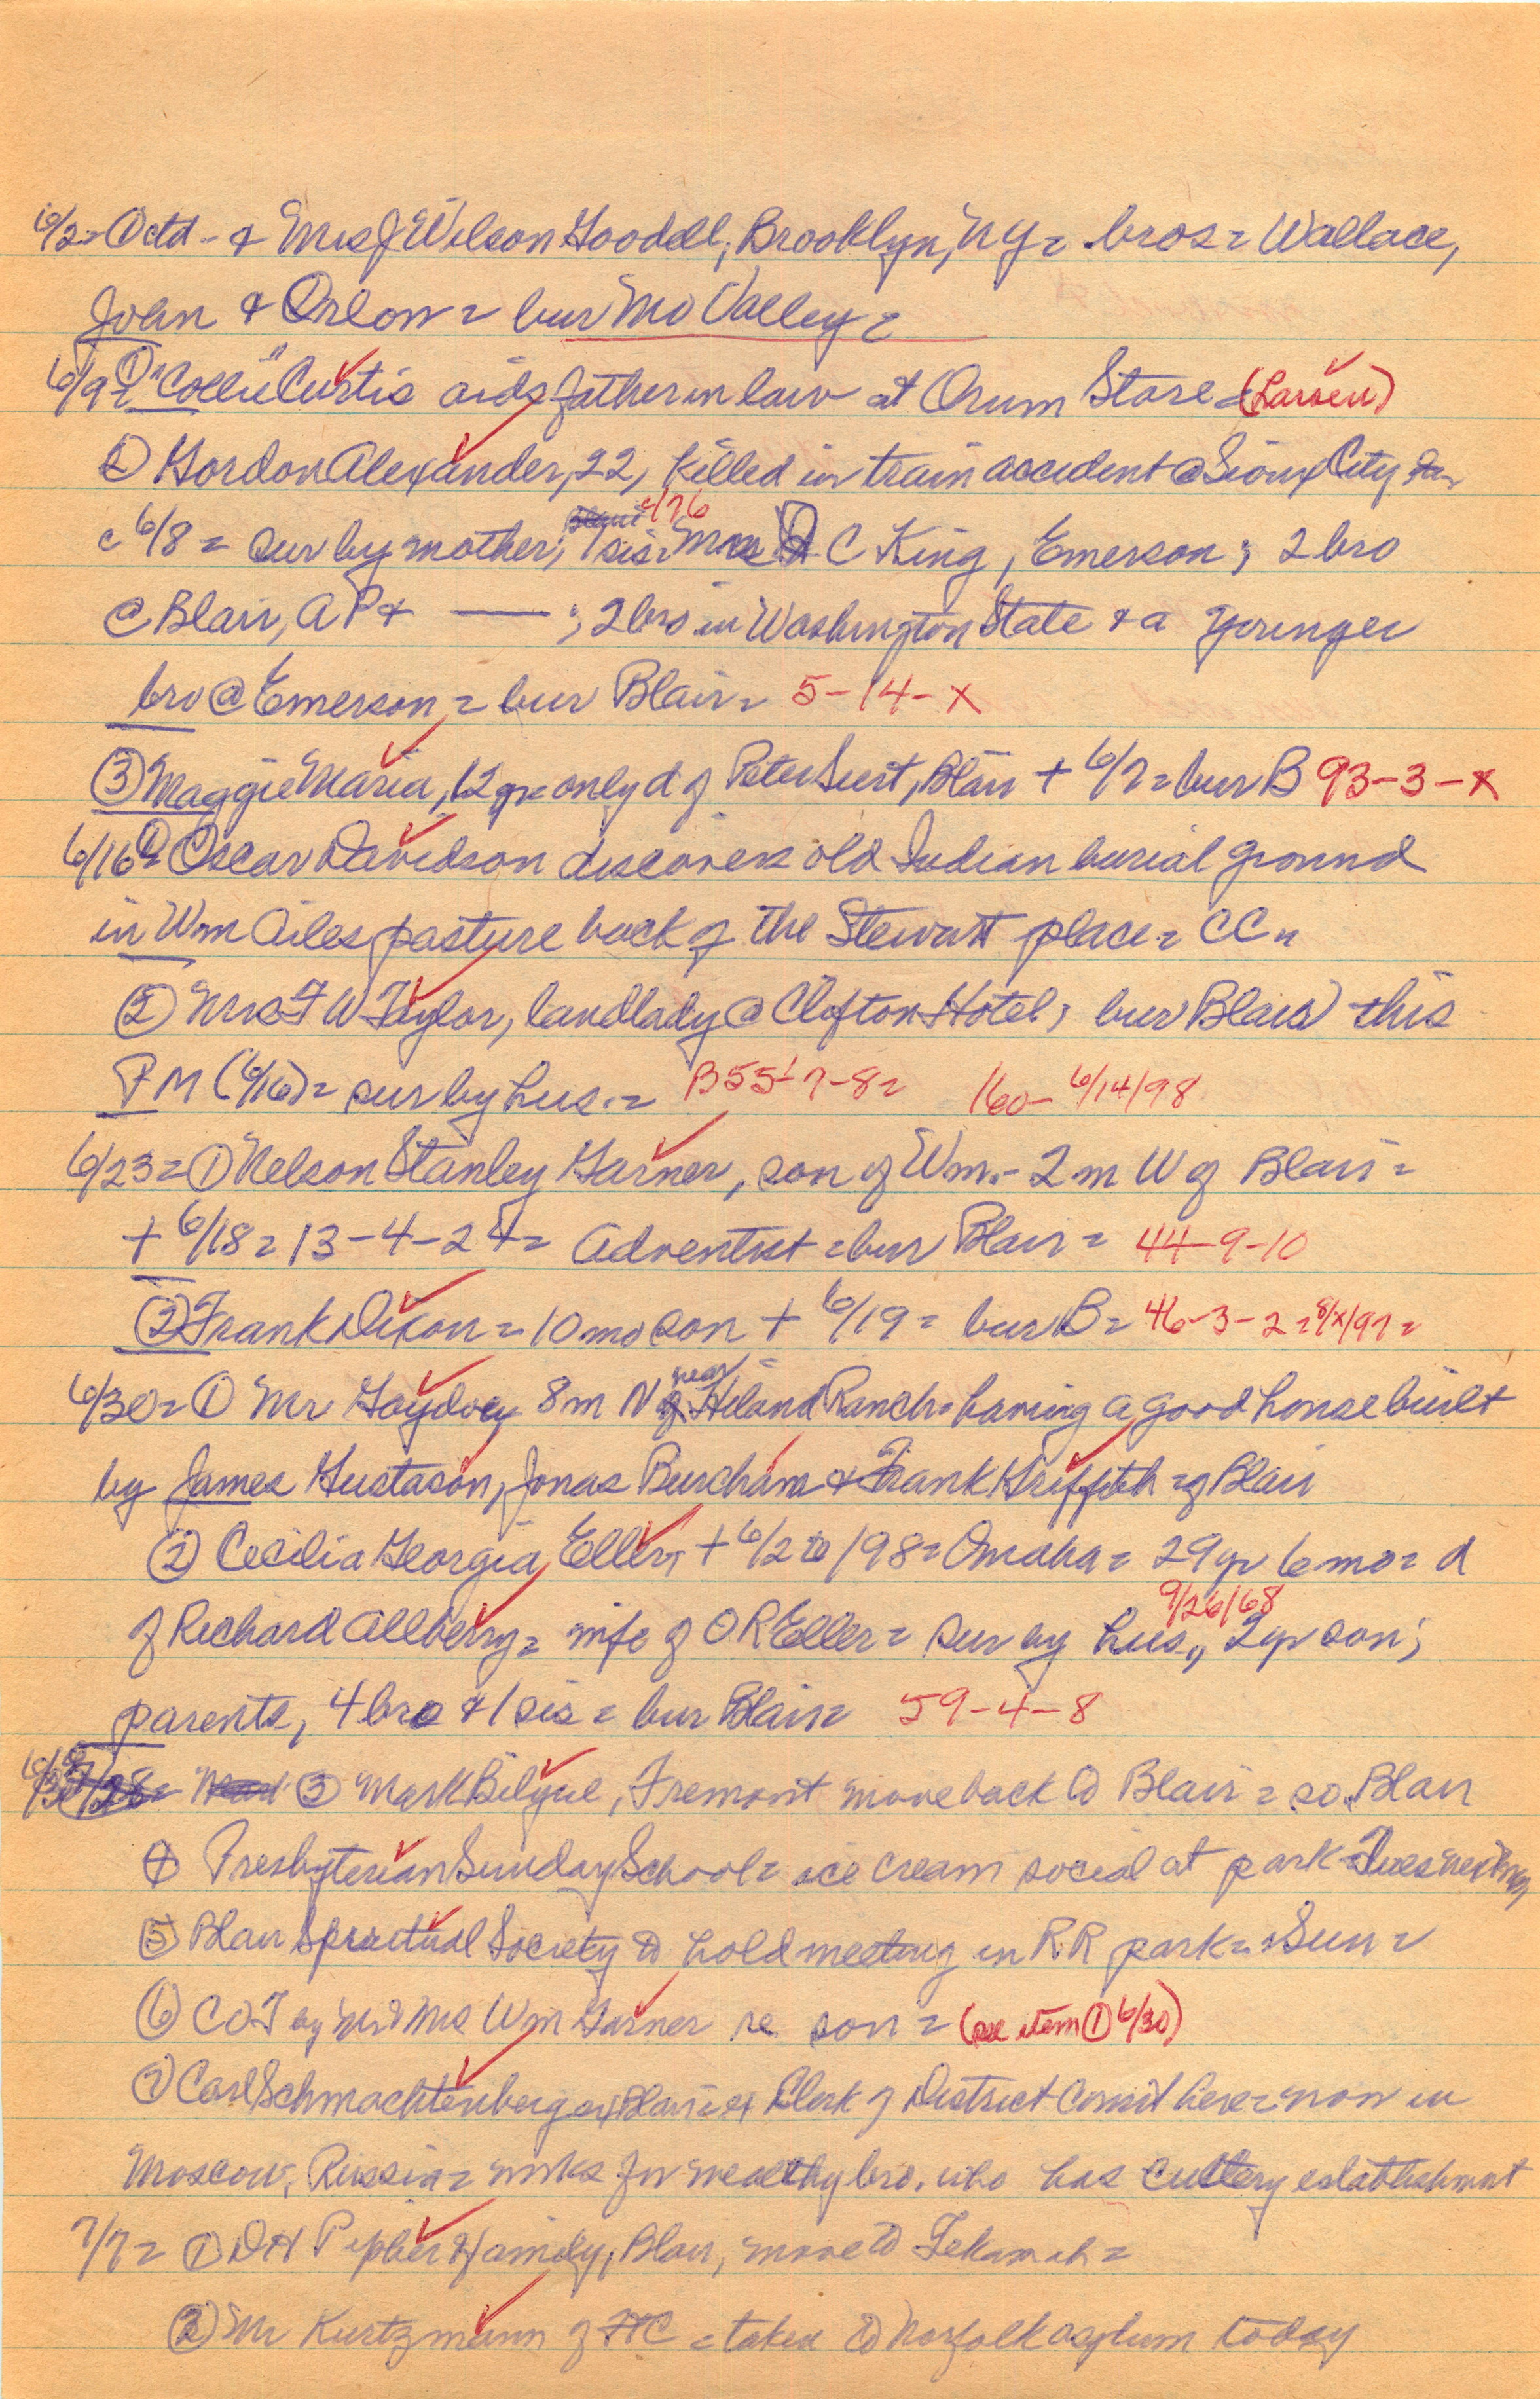 6/2= ① ctd - & Mrs J Wilson Goodell, Brooklyn, NY = bros = Wallace,
John & Orlow = bur Mo Valley =
6/9= ① "Collie" Curtis aids father in law at Orum Store = (Larsen)
② Gordon Alexander, 22, killed in train accident @ Sioux City
c 6/8 = sur by mother; 1 sis = Mrs C King, Emerson; 2 bro
c/76
@ Blair, A P & —— ; 2 bro in Washington State & a younger
bro @ Emerson = bur Blair = 5-14-x
③ Maggie Maria, 12 yr = only d of Peter Suit, Blair + 6/7 = bur B 93-3-x
6/16= ① Oscar Davidson discovers old Indian burial ground
in Wm Ailes pasture back of the Stewart place = CC "
② Mrs F W Taylor, landlady @ Clifton Hotel; bur Blair this
PM (6/16) = sur by hus. = B 55-7-8 = 160- 6/14/98
6/23= ① Nelson Stanley Garner, son of Wm. - 2 m W of Blair =
+ 6/18 = 13-4-24 = Adventist = bur Blair = 44-9-10
② Frank Dixon = 10 mo son + 6/19 = bur B = 46-3-2 = 8/x/97 =
near
6/30= ① Mr Gaydvey 8 m N Hiland Ranch = having a good house built
by James Gustason, Jonas Burcham & Frank Griffith = of Blair
② Cecilia Georgia Eller, + 6/2 /98 = Omaha = 29 yr 6 mo = d
9/26/68
of Richard Allbery = wife of O R Eller = sur by hus., 2 yr son;
parents, 4 bro & 1 sis = bur Blair = 59-4-8
③ Mark Bilyue, Fremont move back to Blair = so. Blair
④ Presbyterian Sunday School = ice cream social at park = Tues
⑤ Blair Spiritual Society to hold meeting in RR park = Sun =
⑥ COT by Mr & Mrs Wm Garner re son = (see item ① 6/30)
⑦ Carl Schmachtenberg ex Blair = ex Clerk of District Court here = now in
Moscow, Russia = works for wealthy bro. who has cutlery establishment
7/7= ① D H Pipher & family, Blair, move to Tekamah =
② Mr Kurtzmann of FTC = taken to Norfolk asylum today